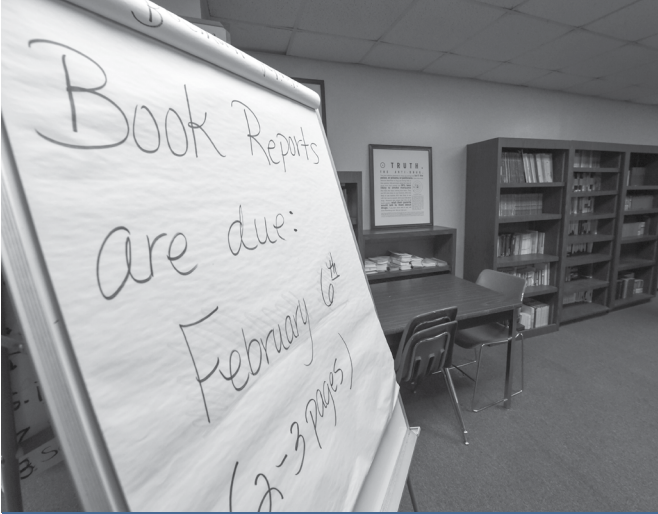 Book Reports
are due:
February 6th
(2-3 pages)
TRUTH.